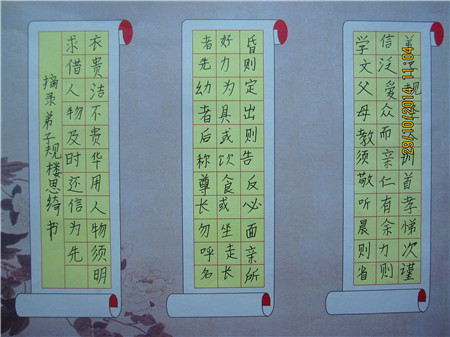 弟子规训首孝悌次谨
信泛爱众而亲仁有余力则
学文父母教须敬听晨则省
昏则定出则告反必面亲所
好力为具或饮食或坐走长
者先幼者后称尊长勿呼名
衣贵洁不贵华用人物须明
求借人物及时还信为先
摘录弟子规楼思绮书
29/10/2014 11:04